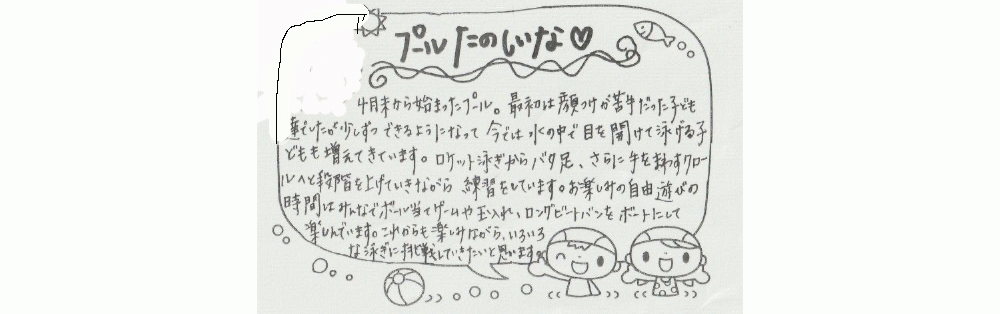 プールたのしいな♡
4月末から始まったプール。最初は顔つけが苦手だった子ども
達でしたが少しずつできるようになって今では水の中で目を開けて泳げる子
どもも増えてきています。ロケット泳ぎからバタ足、さらに手をまわすクロー
ルへと段階を上げていきながら練習をしています。お楽しみの自由遊びの
時間はみんなでボール当てゲームや玉入れ、ロングビートバンをボートにして
楽しんでいます。これからも楽しみながら、いろいろ
な泳ぎに挑戦していきたいと思います。